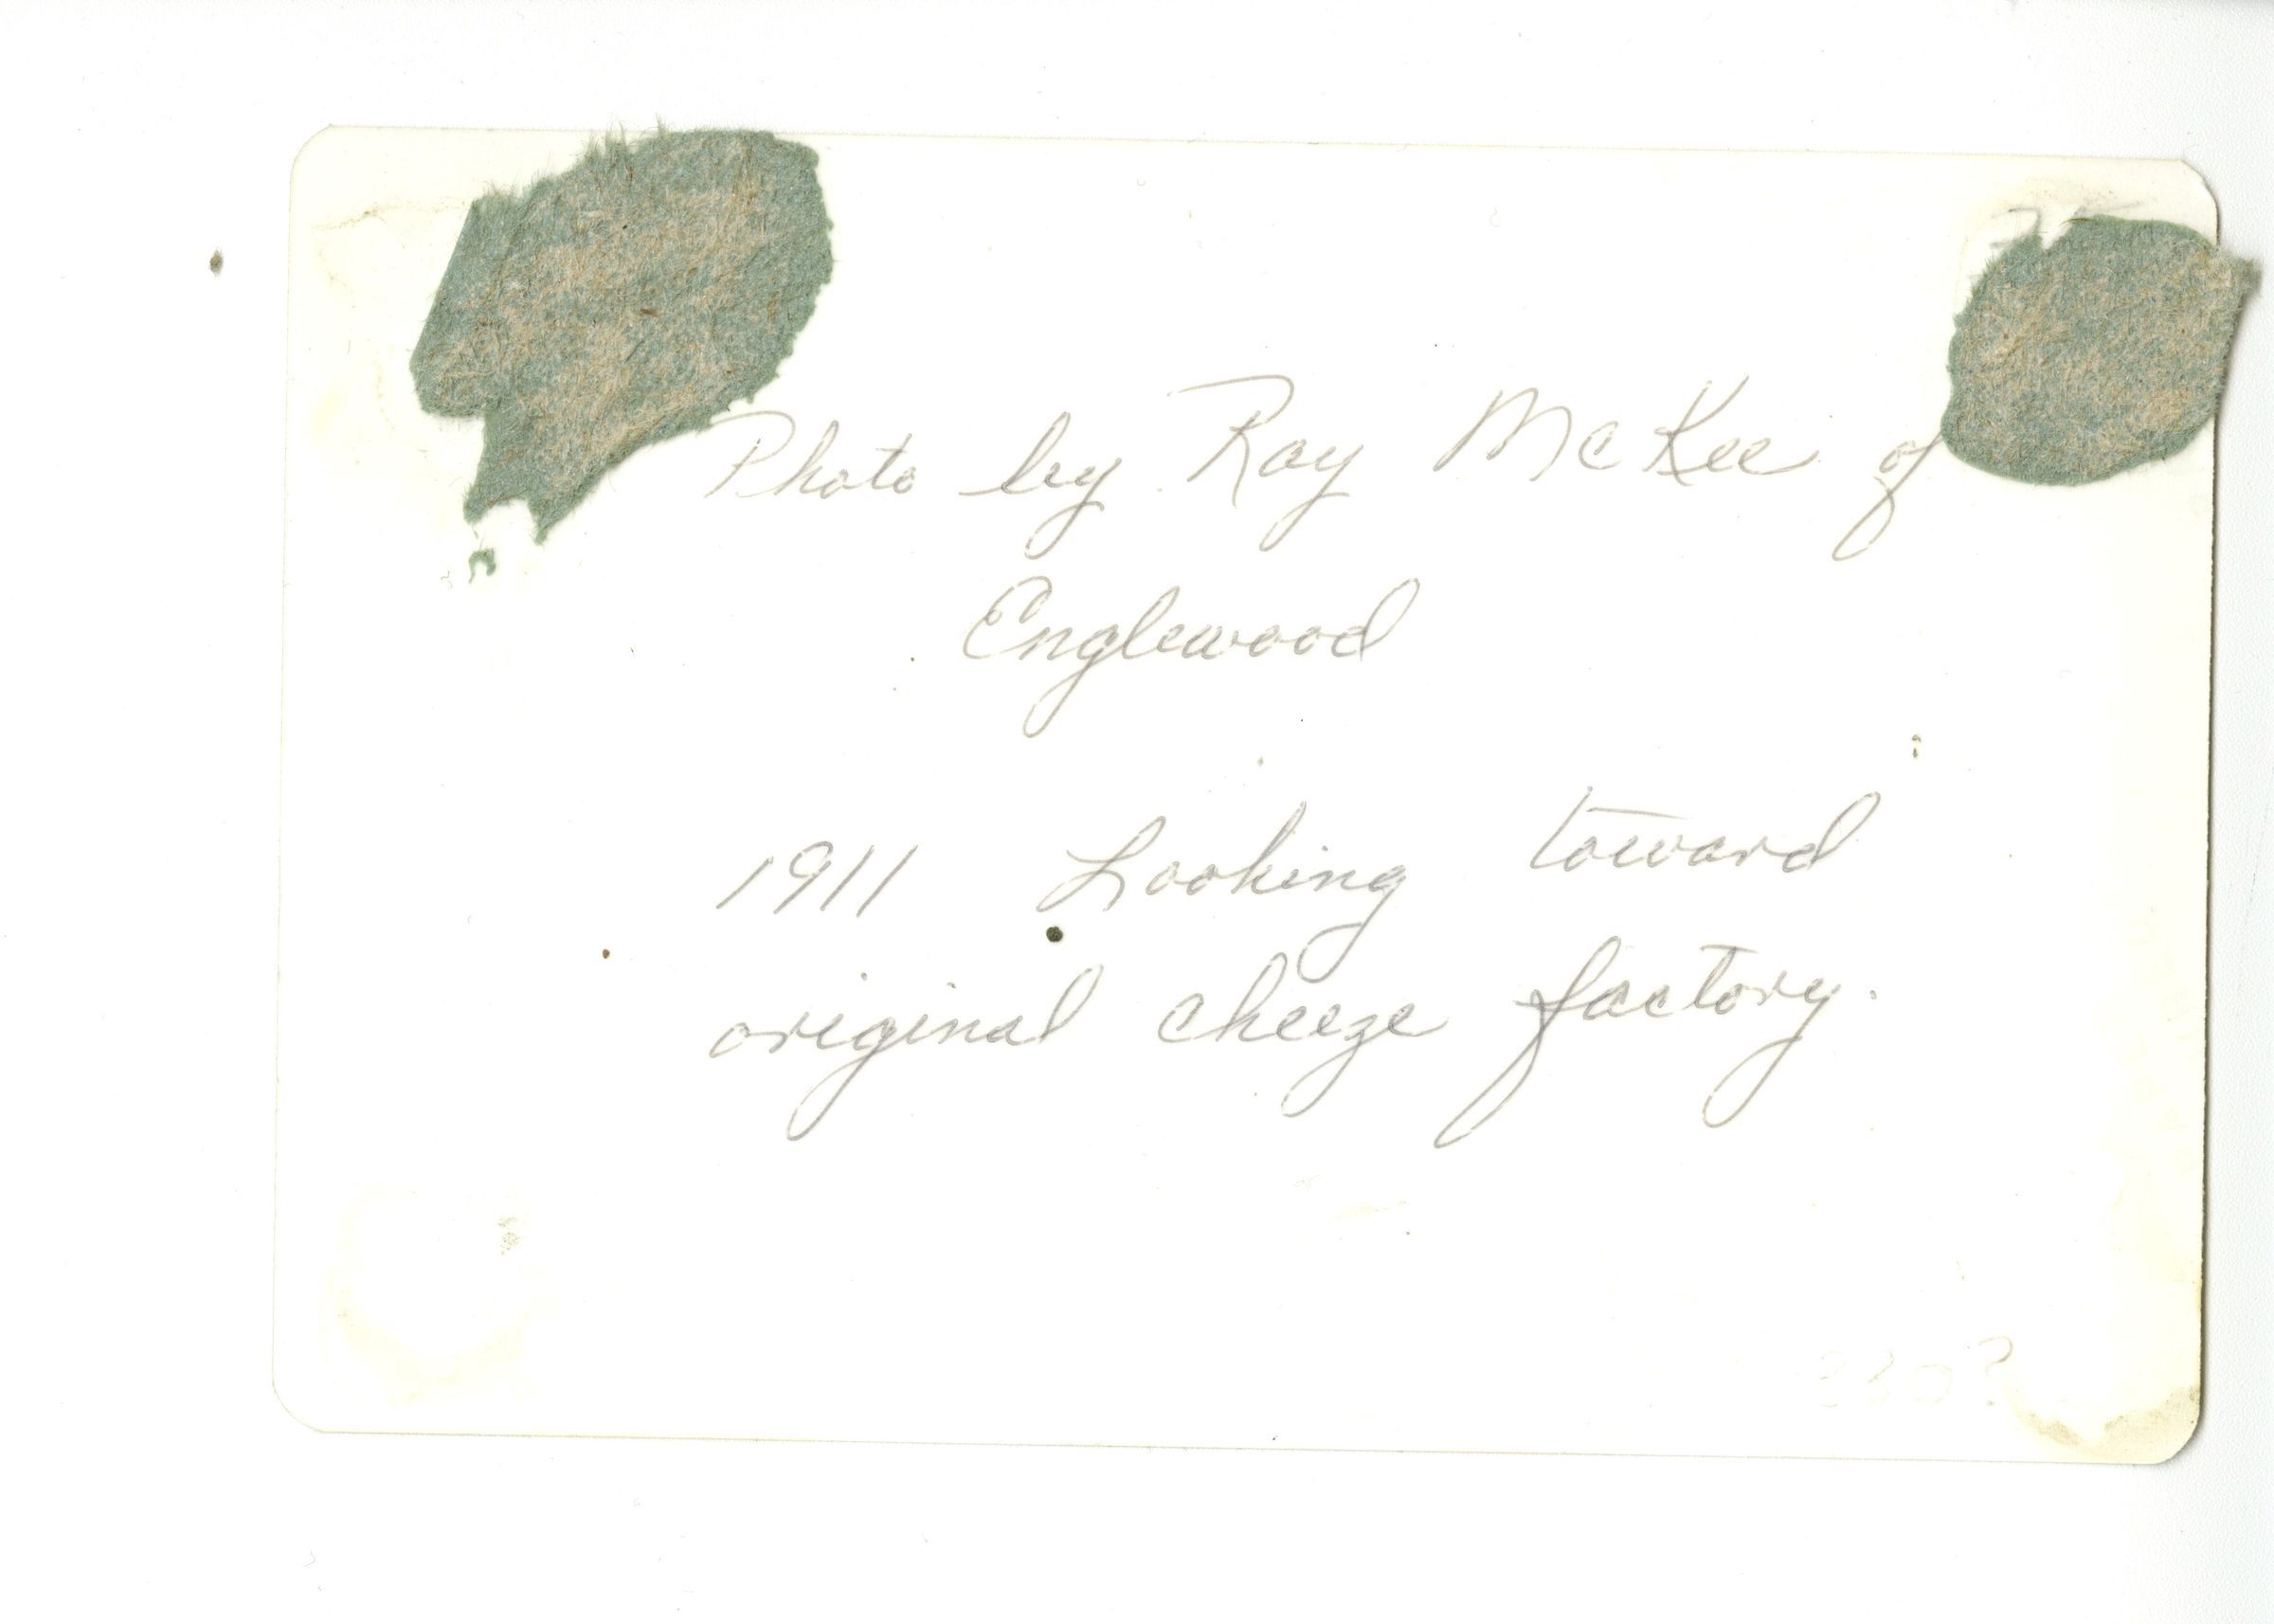 Photo by Ray McKee of
Englewood
1911 Looking toward
original cheeze factory.